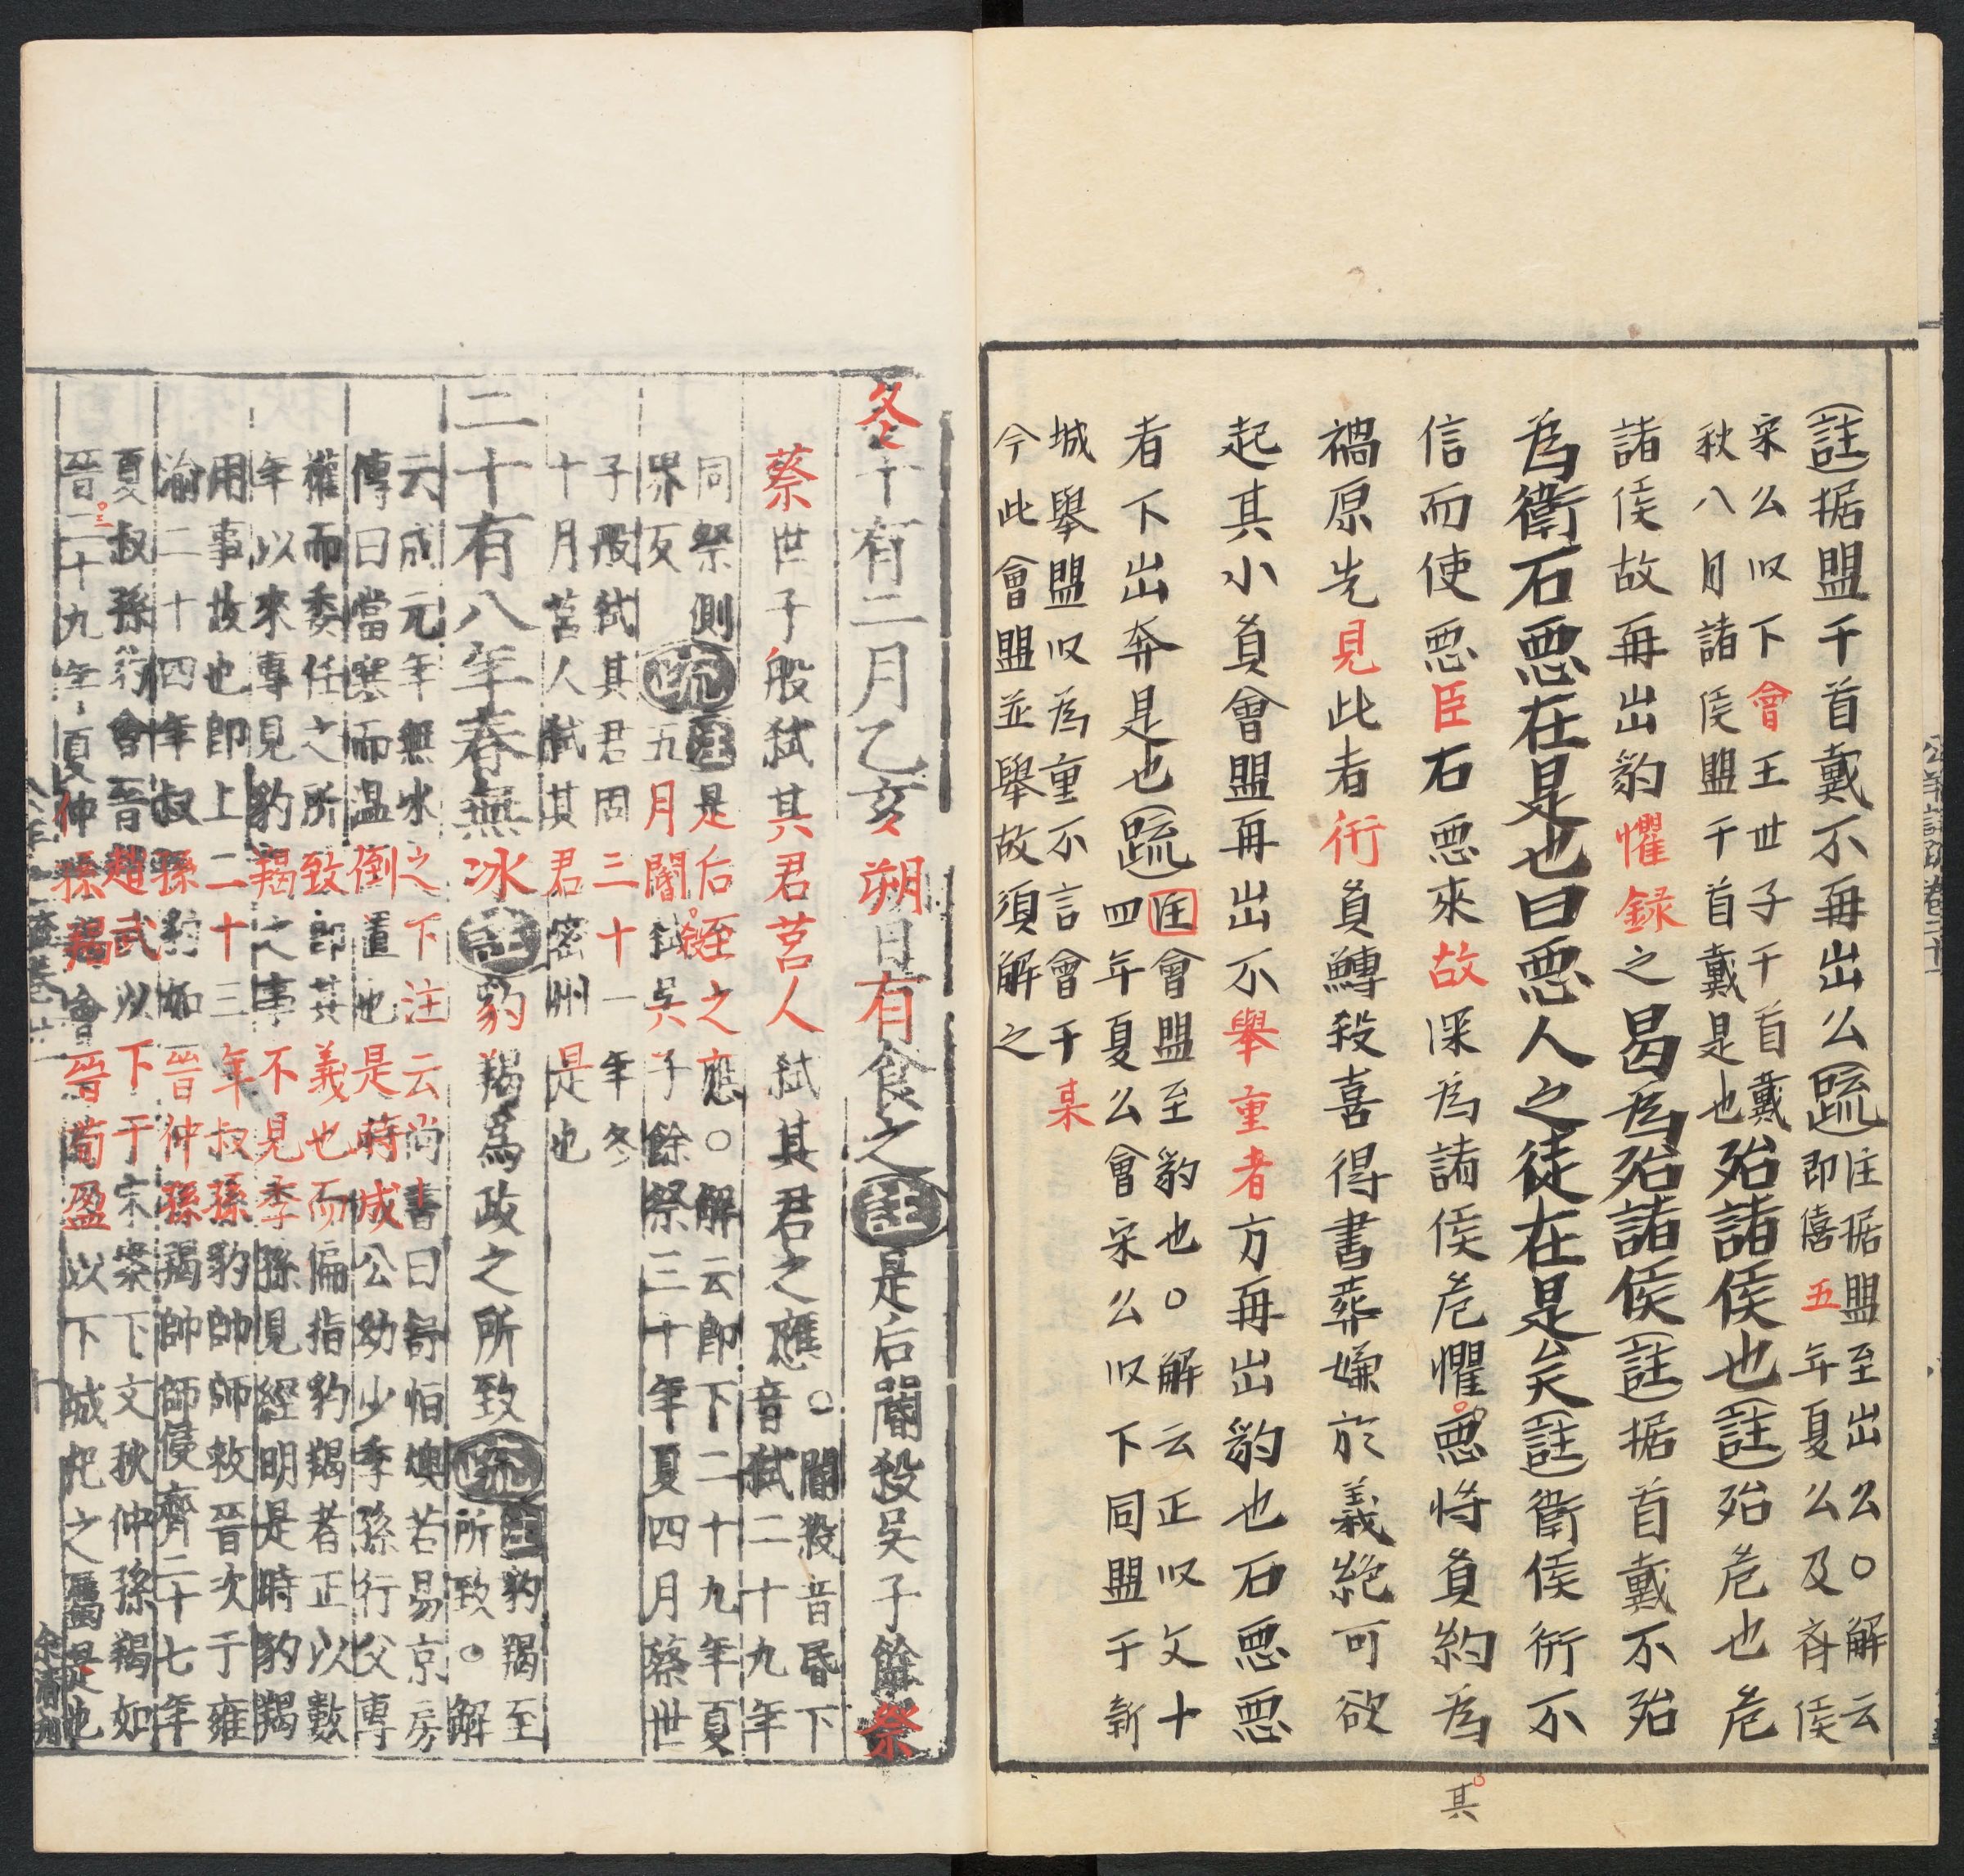 註据盟于首戴不再出公疏注据盟至出公○解云
即僖五年夏公及齊侯
宋公以下會王世子于首戴
秋八月諸侯盟于首戴是也殆諸侯也註殆危也危
諸侯故再出豹懼録之曷為殆諸侯註据首戴不殆
為衛石惡在是也曰惡人之徒在是矣註衛侯衎不
信而使惡臣石惡來故深為諸侯危懼惡將負約為
其
禍原先見此者衎負鱄殺喜得書葬嫌於義絶可欲
起其小負會盟再出不舉重者方再出豹也石惡惡
者下出奔是也疏注會盟至豹也○解云正以文十
四年夏公會宋公以下同盟于新
城舉盟以為重不言會于某
今此會盟並舉故須解之
冬十有二月乙亥朔日有食之註是后閽殺吳子餘祭
蔡世子般弒其君莒人弒其君之應○閽殺音昏下
音弒二十九年
同祭側
界反疏注是后至之應○解云即下二十九年夏
五月閽弒吳子餘祭三十年夏四月蔡世
子般弒其君固三十一年冬
十月莒人弒其君密州是也
二十有八年春無冰註豹羯為政之所致疏注豹羯至
所致○解
云成元年無冰之下注云尚書曰舒恒燠若易京房
傳曰當寒而温倒置也是時成公幼少季孫行父專
權而委任之所致即其義也而偏指豹羯者正以數
年以來專見豹羯之事不見季孫見經明是時豹羯
用事故也即上二十三年叔孫豹帥師救晉次于雍
渝二十四年叔孫豹如晉仲孫羯帥師侵齊二十七年
夏叔孫豹會晉趙武以下于宋案下文秋仲孫羯如
晉二十九年夏仲孫羯會晉荀盈以下城杞之屬是也